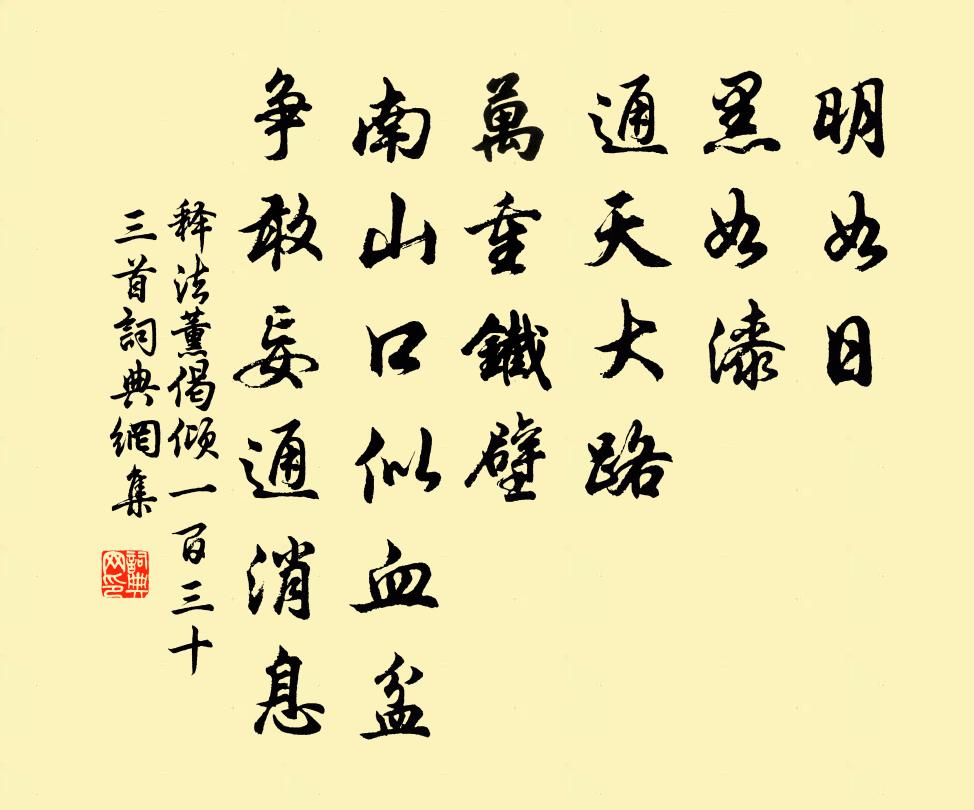 明如日
黑如漆
通天大路
萬重鐵壁
南山口似血盆
争敢妄通消息
释法薰偈倾一百三十
三首詞典網集
詞典
网印